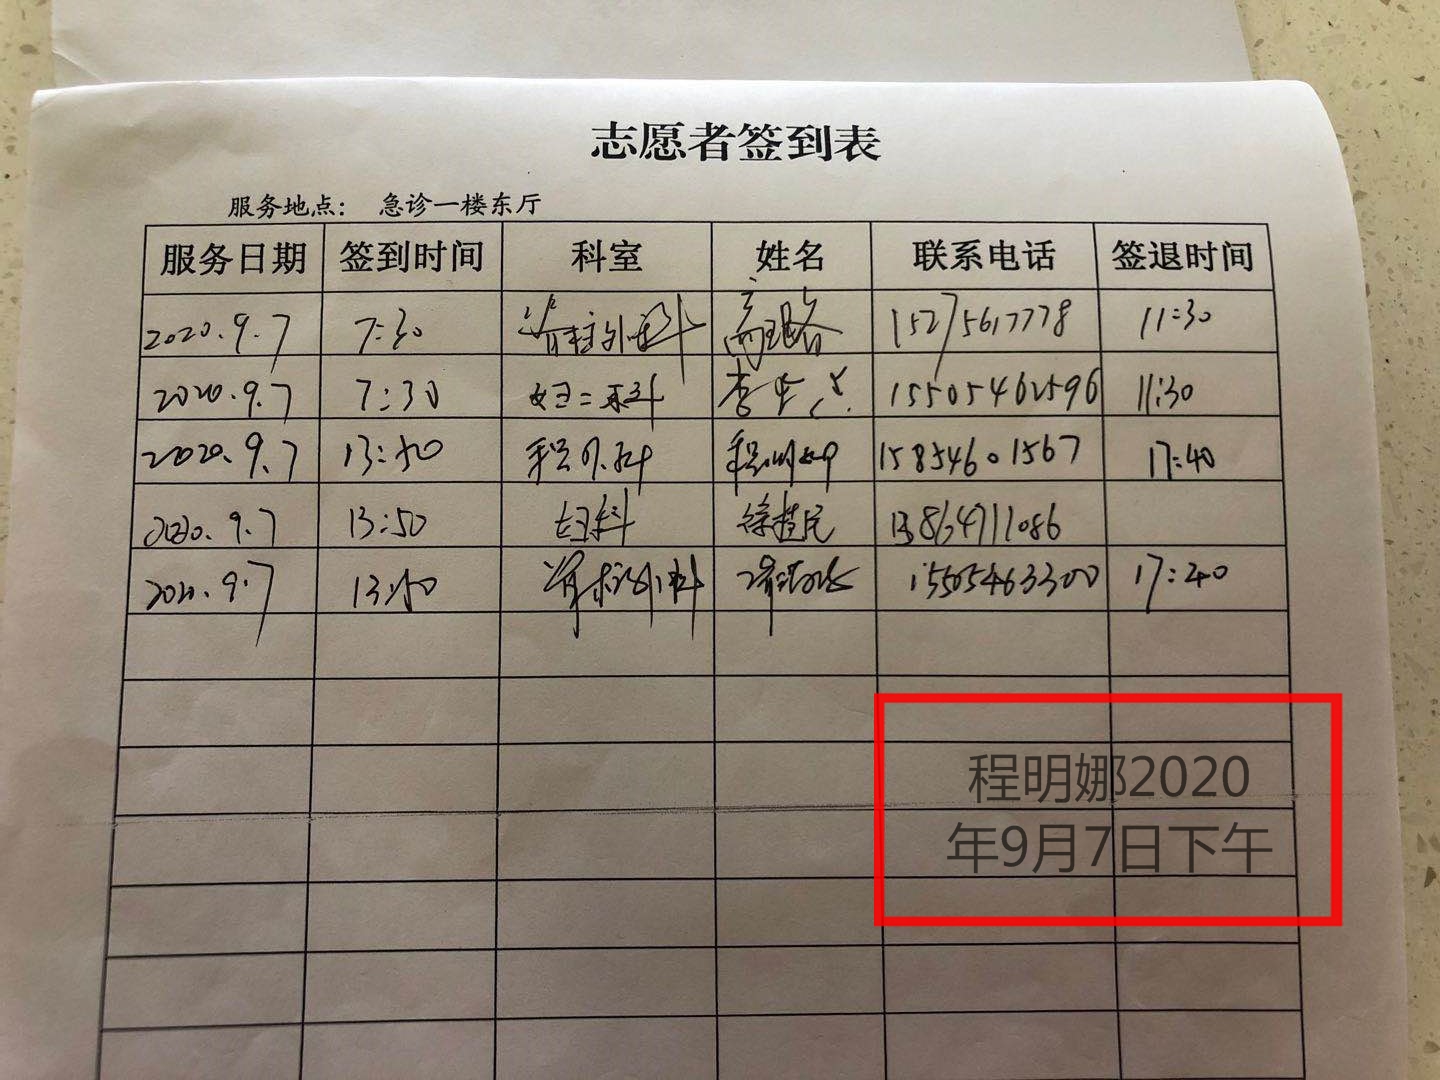 志愿者签到表
服务地点： 急诊一楼东厅
服务日期 签到时间 科室 姓名 联系电话 签退时间
2020.9.7 7:30 脊柱外科 高璐 15275617778 11:30
2020.9.7 7:30 妇二科 李 15505462596 11:30
2020.9.7 13:50 程明娜 15854601567 17:40
2020.9.7 13:50 妇科 13864711086
2020.9.7 13:50 脊柱外科 15505463300 17:40
程明娜2020
年9月7日下午